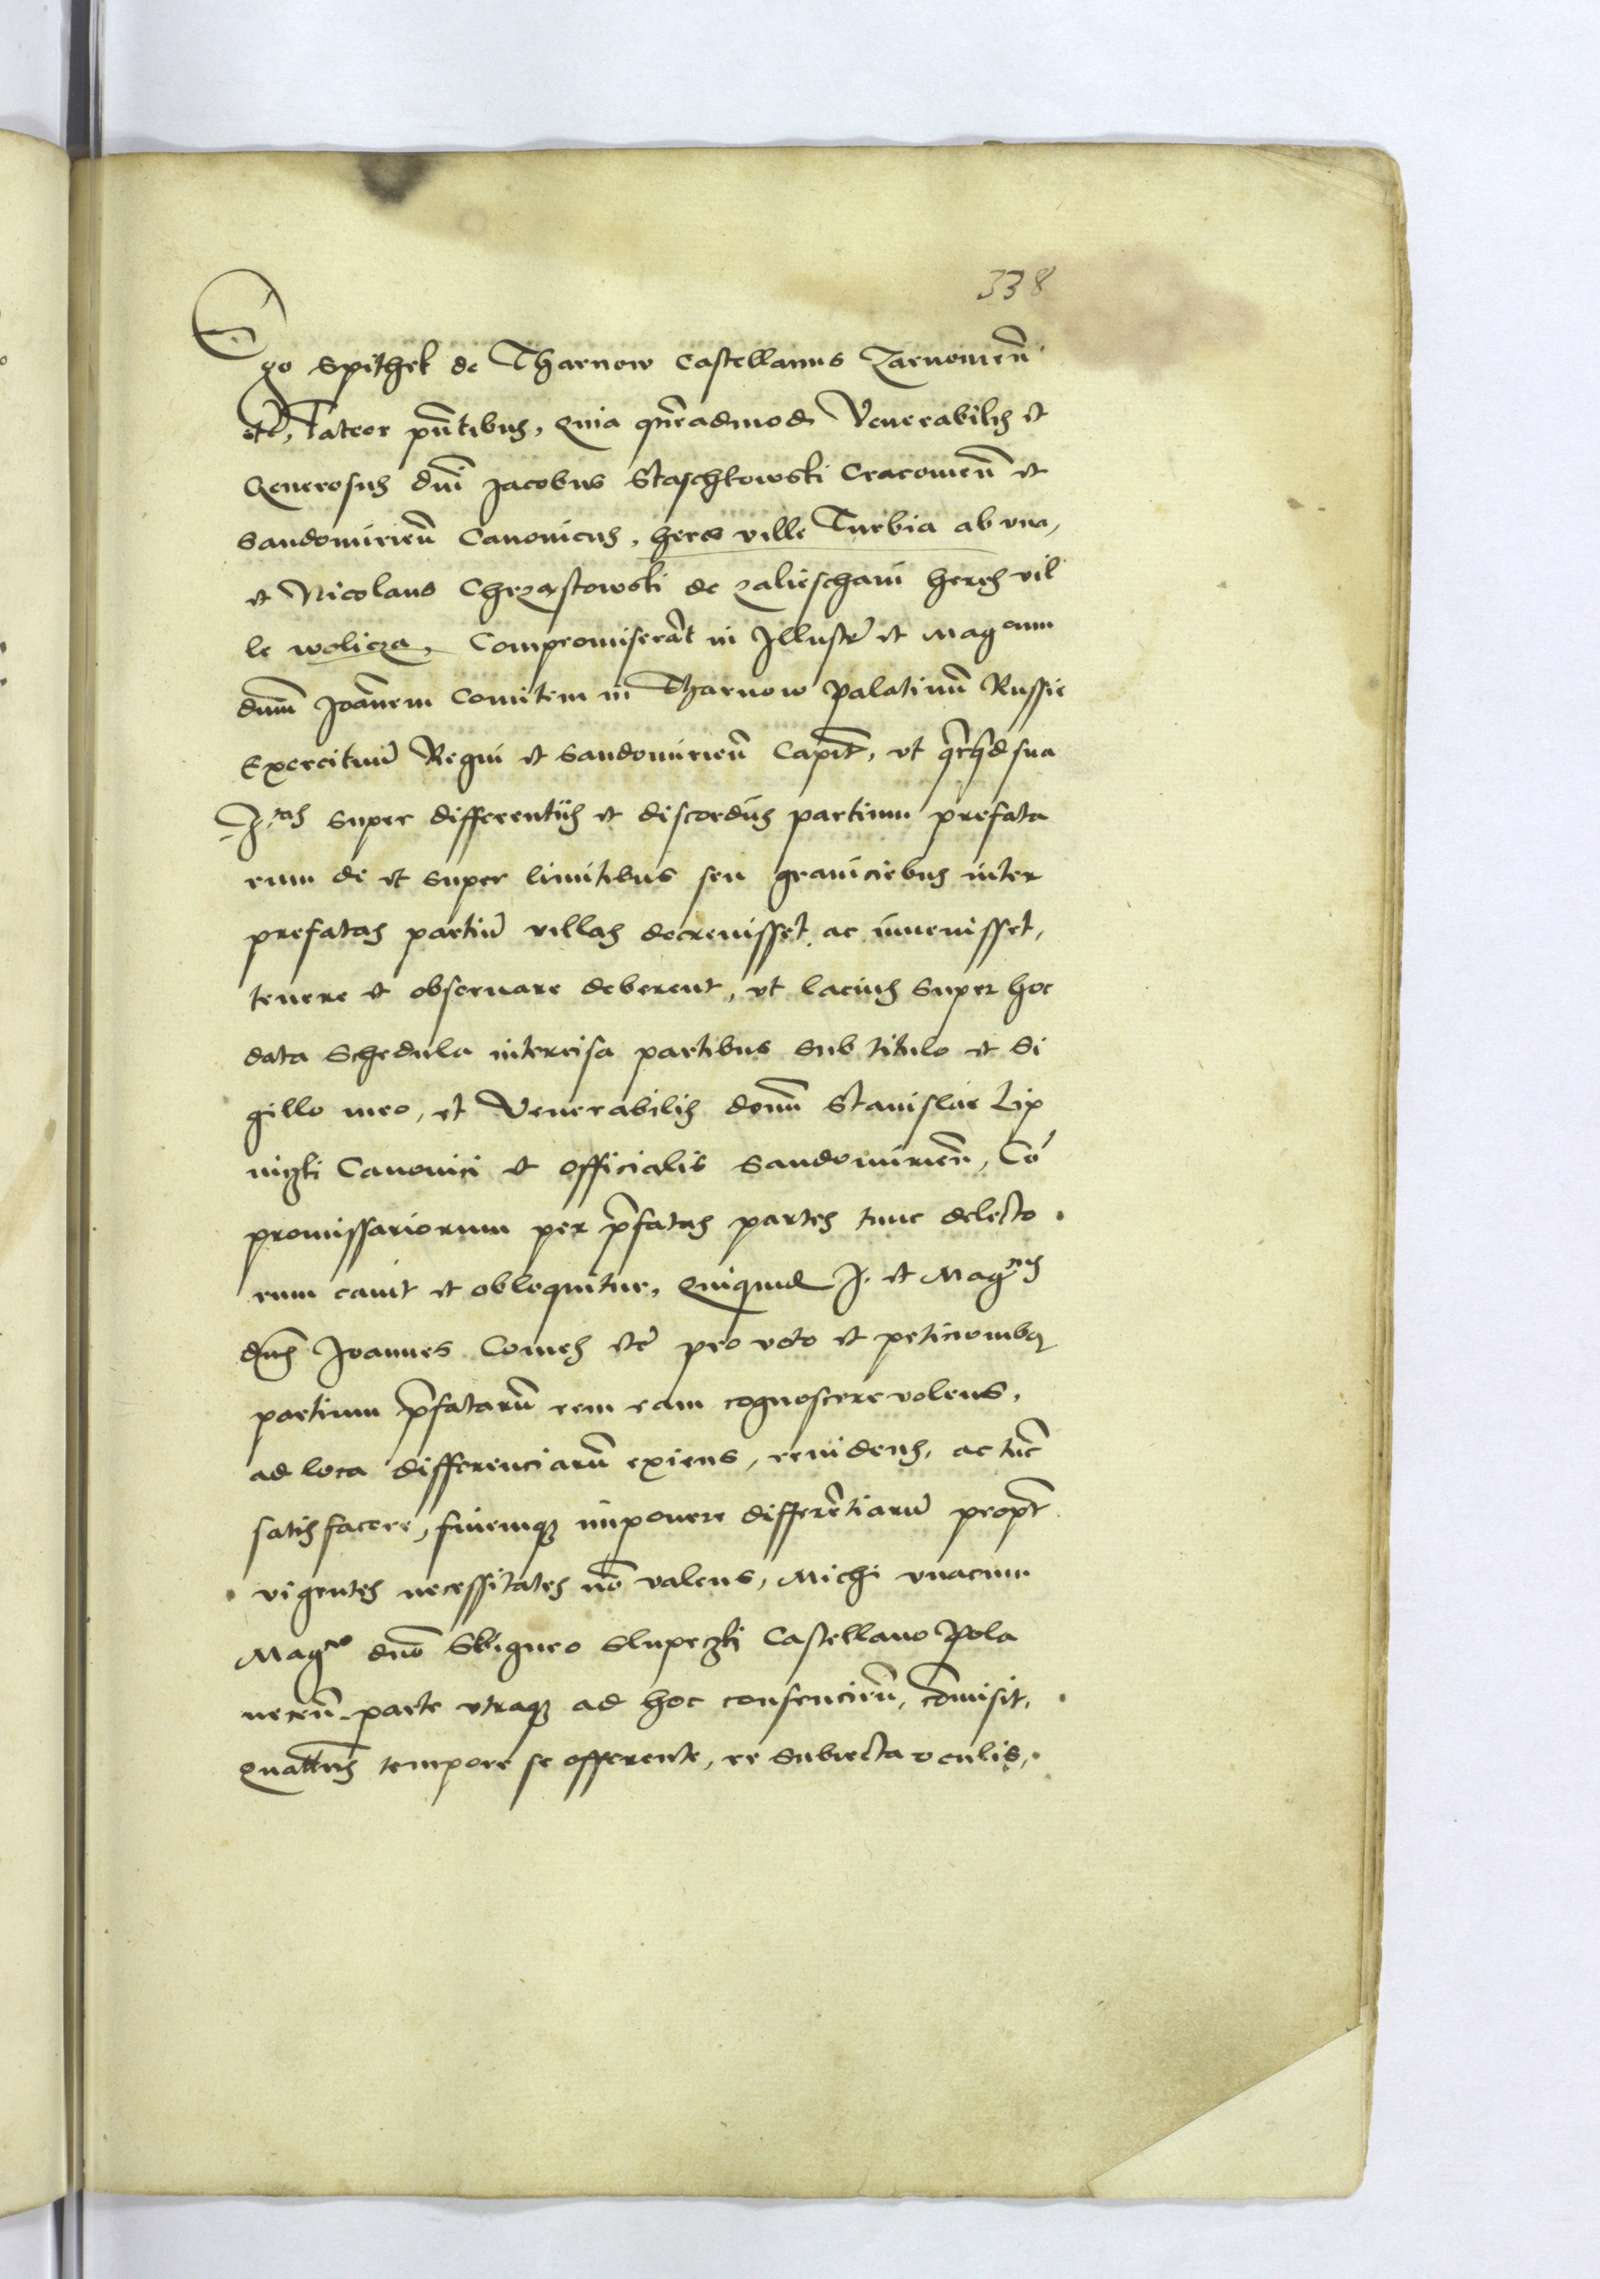 338
Ego Spithek de Tharnow Castellanus Zarnouieñ
etc̃, Fateor pñtibus, quia queadmod Venerabilis et
Generosus dñi Jacobus Staschkowski Cracouieñ et
Sandomirieñ Canonicus, heres ville Turbia ab vna,
et Nicolaus Chrząstowski de zalieschani heres vil
le wolicza, Compromiserãt in Illustr̃ et Mag cum
dñum Joãnem Comitem in Tharnow palatinũ Russie
Exercituũ Regni et Sandomirieñ Capit̃, vt sua
J. tas super differentiis et discordiis partium prefata
rum de et super limitibus seu graniciebus inter
prefatas partiũ villas decreuisset ac inuenisset,
tenere et obseruare deberent, vt lacius super hoc
data Schedula intercisa partibus sub titulo et Si
gillo meo, et Venerabilis domĩ Stanislai Lip
nizki Canonici et officialis Sandomirieñ, Cõ
promissariorum per p̃fatas partes tunc delecto
rum cauit et obloquitur, Quiquid J. et Mag cus
dñs Joannes Comes etc̃ pro voto et peticionibꝫ
partium p̃fatarũ rem eam cognoscere volens,
ad loca differenciarũ exiens, reuidens, ac tũc
satisfacere, finemqꝫ imponere differẽtiarũ propt̃
vigentes necessitates nõ valens, Michi vnacum
Mag co dño Sbigneo Slupeczki Castellano Pola
necen̄ parte vtraqꝫ ad hoc consencien̄, cõmisit,
Quattn̄s tempore se offerente, re subiecta oculis,